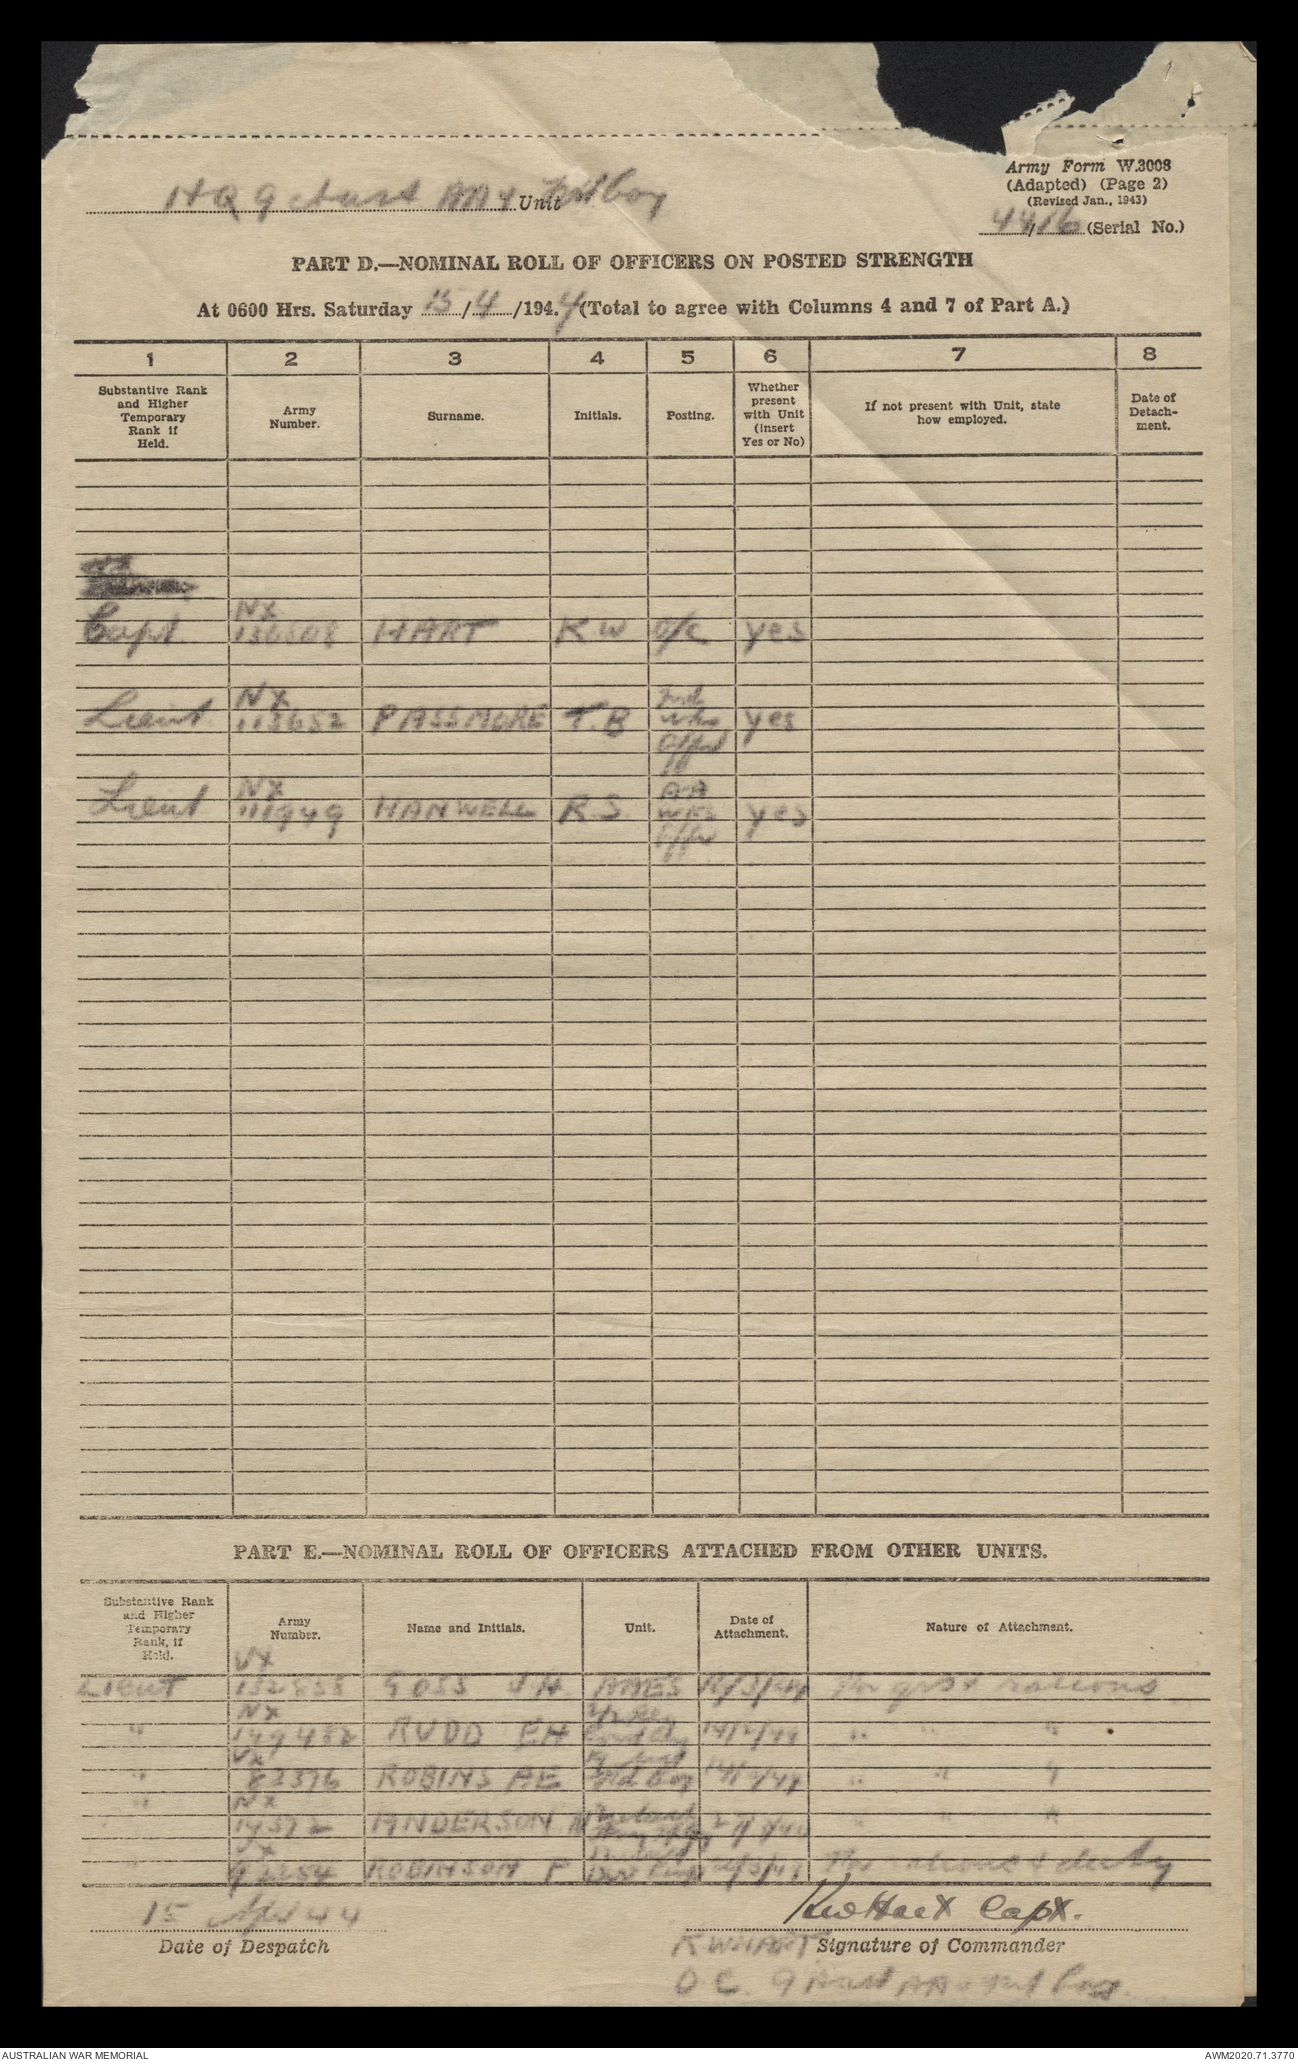 Army Form W.3008
(Adapted) (Page 2)
(Revised Jan., 1943)
HQ 9 Aust AA Unit
44/16 (Serial No.)
PART D.—NOMINAL ROLL OF OFFICERS ON POSTED STRENGTH
At 0600 Hrs. Saturday 15/4/1944 (Total to agree with Columns 4 and 7 of Part A.)
1 2 3 4 5 6 7 8
Substantive Rank and Higher Temporary Rank if Held.
Army Number.
Surname.
Initials.
Posting.
Whether present with Unit (insert Yes or No)
If not present with Unit, state how employed.
Date of Detach-ment.
Capt. NX HART K W O/C yes
Lieut NX 113652 PASSMORE T.B Offr yes
Lieut NX 111949 HANWELL R S. AA Offr yes
PART E.—NOMINAL ROLL OF OFFICERS ATTACHED FROM OTHER UNITS.
Substantive Rank and Higher Temporary Rank, if Held.
Army Number.
Name and Initials.
Unit.
Date of Attachment.
Nature of Attachment.
Lieut VX GOSS J.H. 12/3/44 rations
" NX RUDD EH " " "
" VX 82376 ROBINS AE " " "
" NX 14372 ANDERSON " " "
" VX ROBINSON F rations & duty
15 Apl 44
Date of Despatch
KW Hart Capt.
Signature of Commander
K W HART
O C. 9 Aust AA
AUSTRALIAN WAR MEMORIAL
AWM2020.71.3770